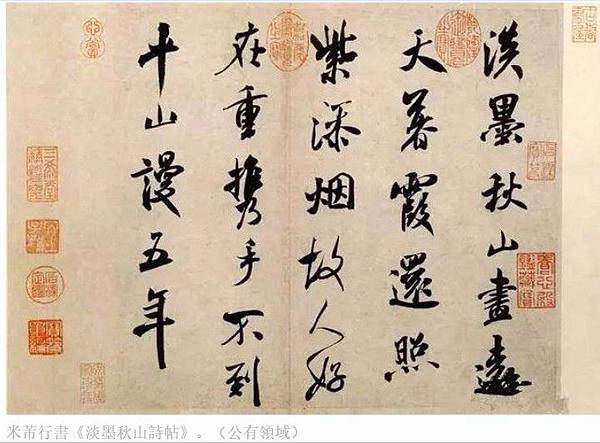 淡墨秋山畫遠
天暮霞還照
紫添烟故人好
在重携手不到
平山謾五年
米芾行書《淡墨秋山詩帖》。（公有領域）